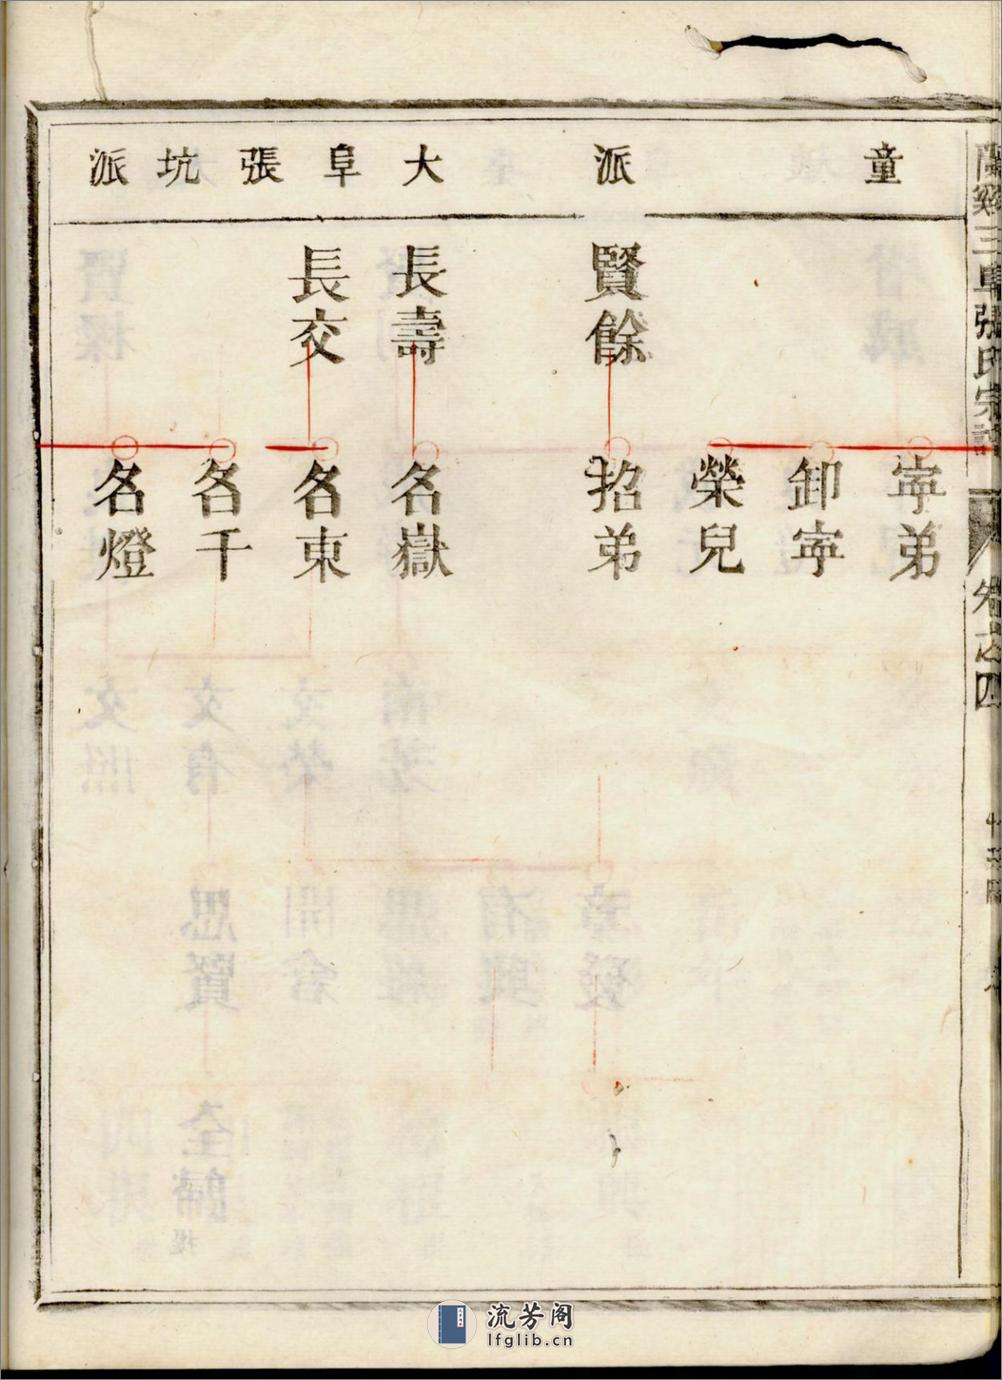 蘭谿三阜張氏宗譜
卷之四
童
派
大阜張坑派
賢餘
長壽
長交
寧弟
卸寧
榮兒
招弟
名嶽
名東
名千
名燈
流芳阁
lfglib.cn